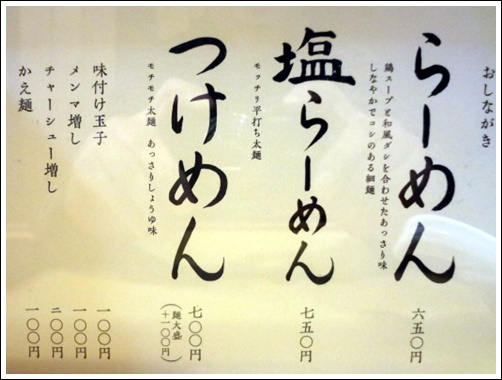 おしながき
らーめん 六五〇円
鶏スープと和風ダシを合わせたあっさり味
しなやかでコシのある細麺
塩らーめん 七五〇円
モッチリ平打ち太麺
つけめん 七〇〇円
(麺大盛+一〇〇円)
モチモチ太麺 あっさりしょうゆ味
味付け玉子 一〇〇円
メンマ増し 一〇〇円
チャーシュー増し 二〇〇円
かえ麺 一〇〇円